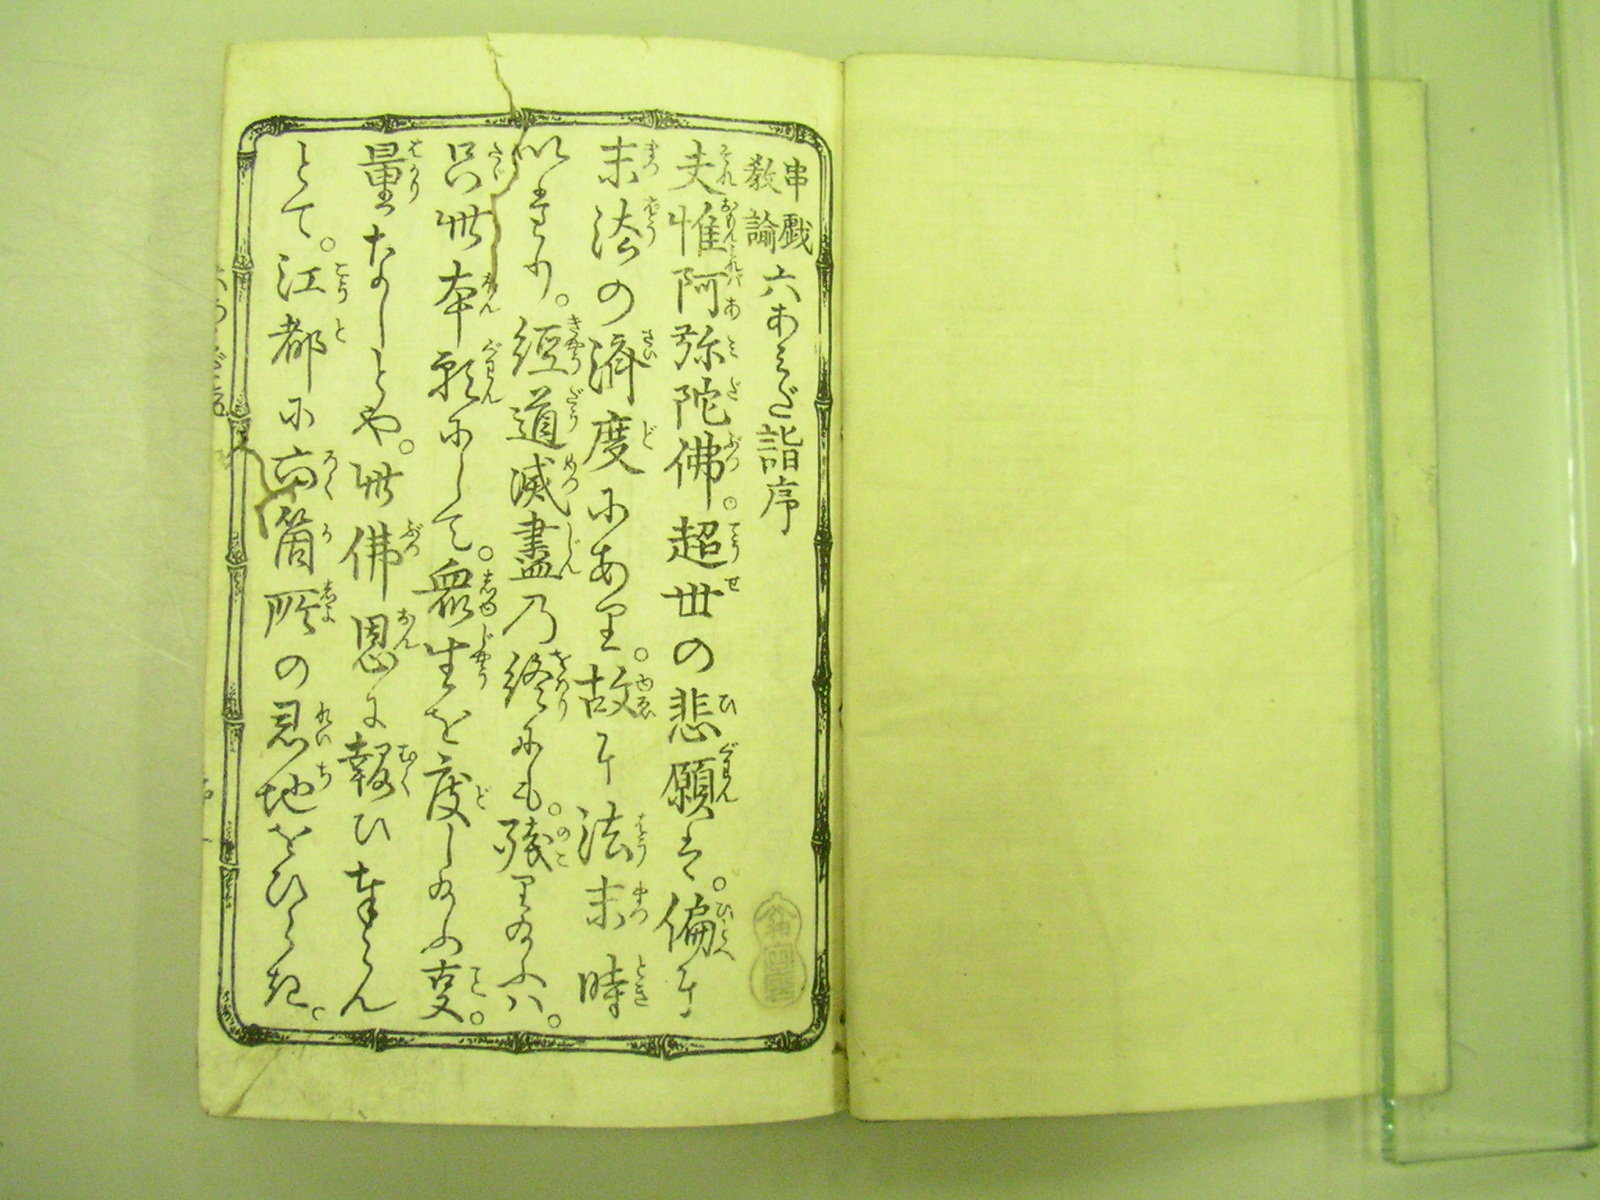 串戯教諭 六あみだ詣序
夫惟阿弥陀佛。超世の悲願は。偏に
末法の済度にあり。故に法末時
いたり。經道滅盡乃終にも。殘り給ふハ。
只此本願にして。衆生を度し給ふ事。
量なしとや。此佛恩に報ひ奉らん
とて。江都に六箇所の灵地をひらき。